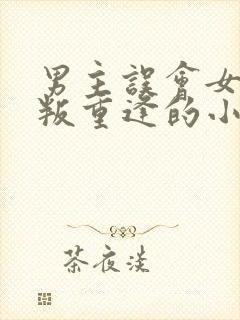 男主誤會女
叛重逢的小
茶夜淡